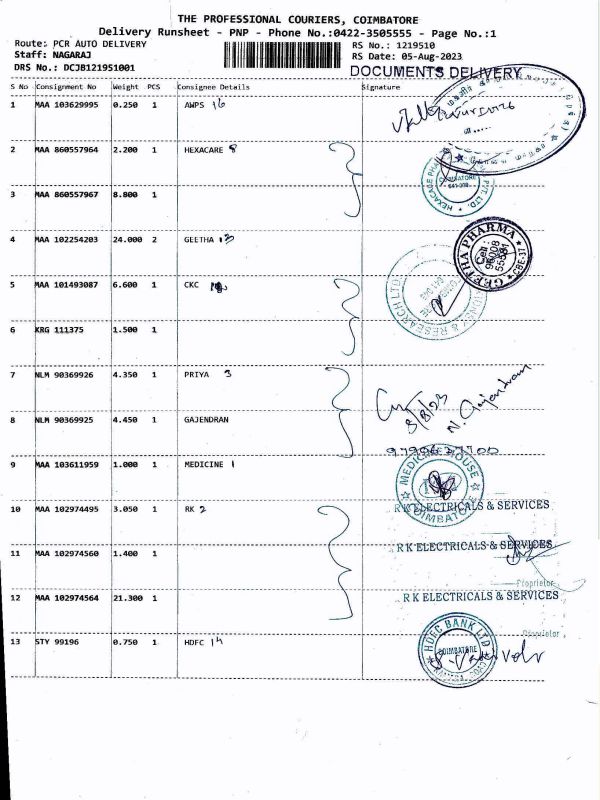 THE PROFESSIONAL COURIERS, COIMBATORE
Delivery Runsheet - PNP - Phone No.:0422-3505555 - Page No.:1
Route: PCR AUTO DELIVERY
Staff: NAGARAJ
DRS No.: DCJB121951001
RS No.: 1219510
RS Date: 05-Aug-2023
DOCUMENTS DELIVERY
S No Consignment No Weight PCS Consignee Details Signature
1 MAA 103629995 0.250 1 AWPS 16
2 MAA 860557964 2.200 1 HEXACARE 8
3 MAA 860557967 8.800 1
4 MAA 102254203 24.000 2 GEETHA 13
GEETHA PHARMA CBE-37
Cell :
5 MAA 101493087 6.600 1 CKC
& RESEARCH LTD
6 KRG 111375 1.500 1
7 NLM 90369926 4.350 1 PRIYA 3
8/8/23
N. Gajendran
8 NLM 90369925 4.450 1 GAJENDRAN
9 MAA 103611959 1.000 1 MEDICINE 1
MEDICINE HOUSE
COIMBATORE
10 MAA 102974495 3.050 1 RK 2
R K ELECTRICALS & SERVICES
11 MAA 102974560 1.400 1
R K ELECTRICALS & SERVICES
Proprietor
12 MAA 102974564 21.300 1
R K ELECTRICALS & SERVICES
Proprietor
13 STY 99196 0.750 1 HDFC 14
HDFC BANK LTD
COIMBATORE